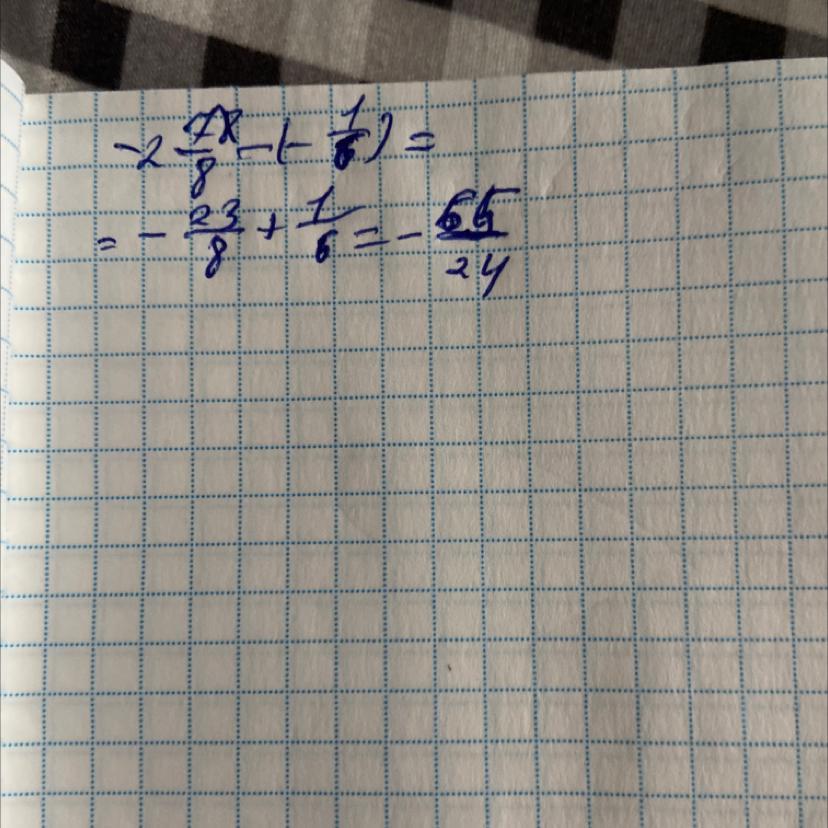 -2 7/8 - (- 1/6) =
= - 23/8 + 1/6 = - 65/24